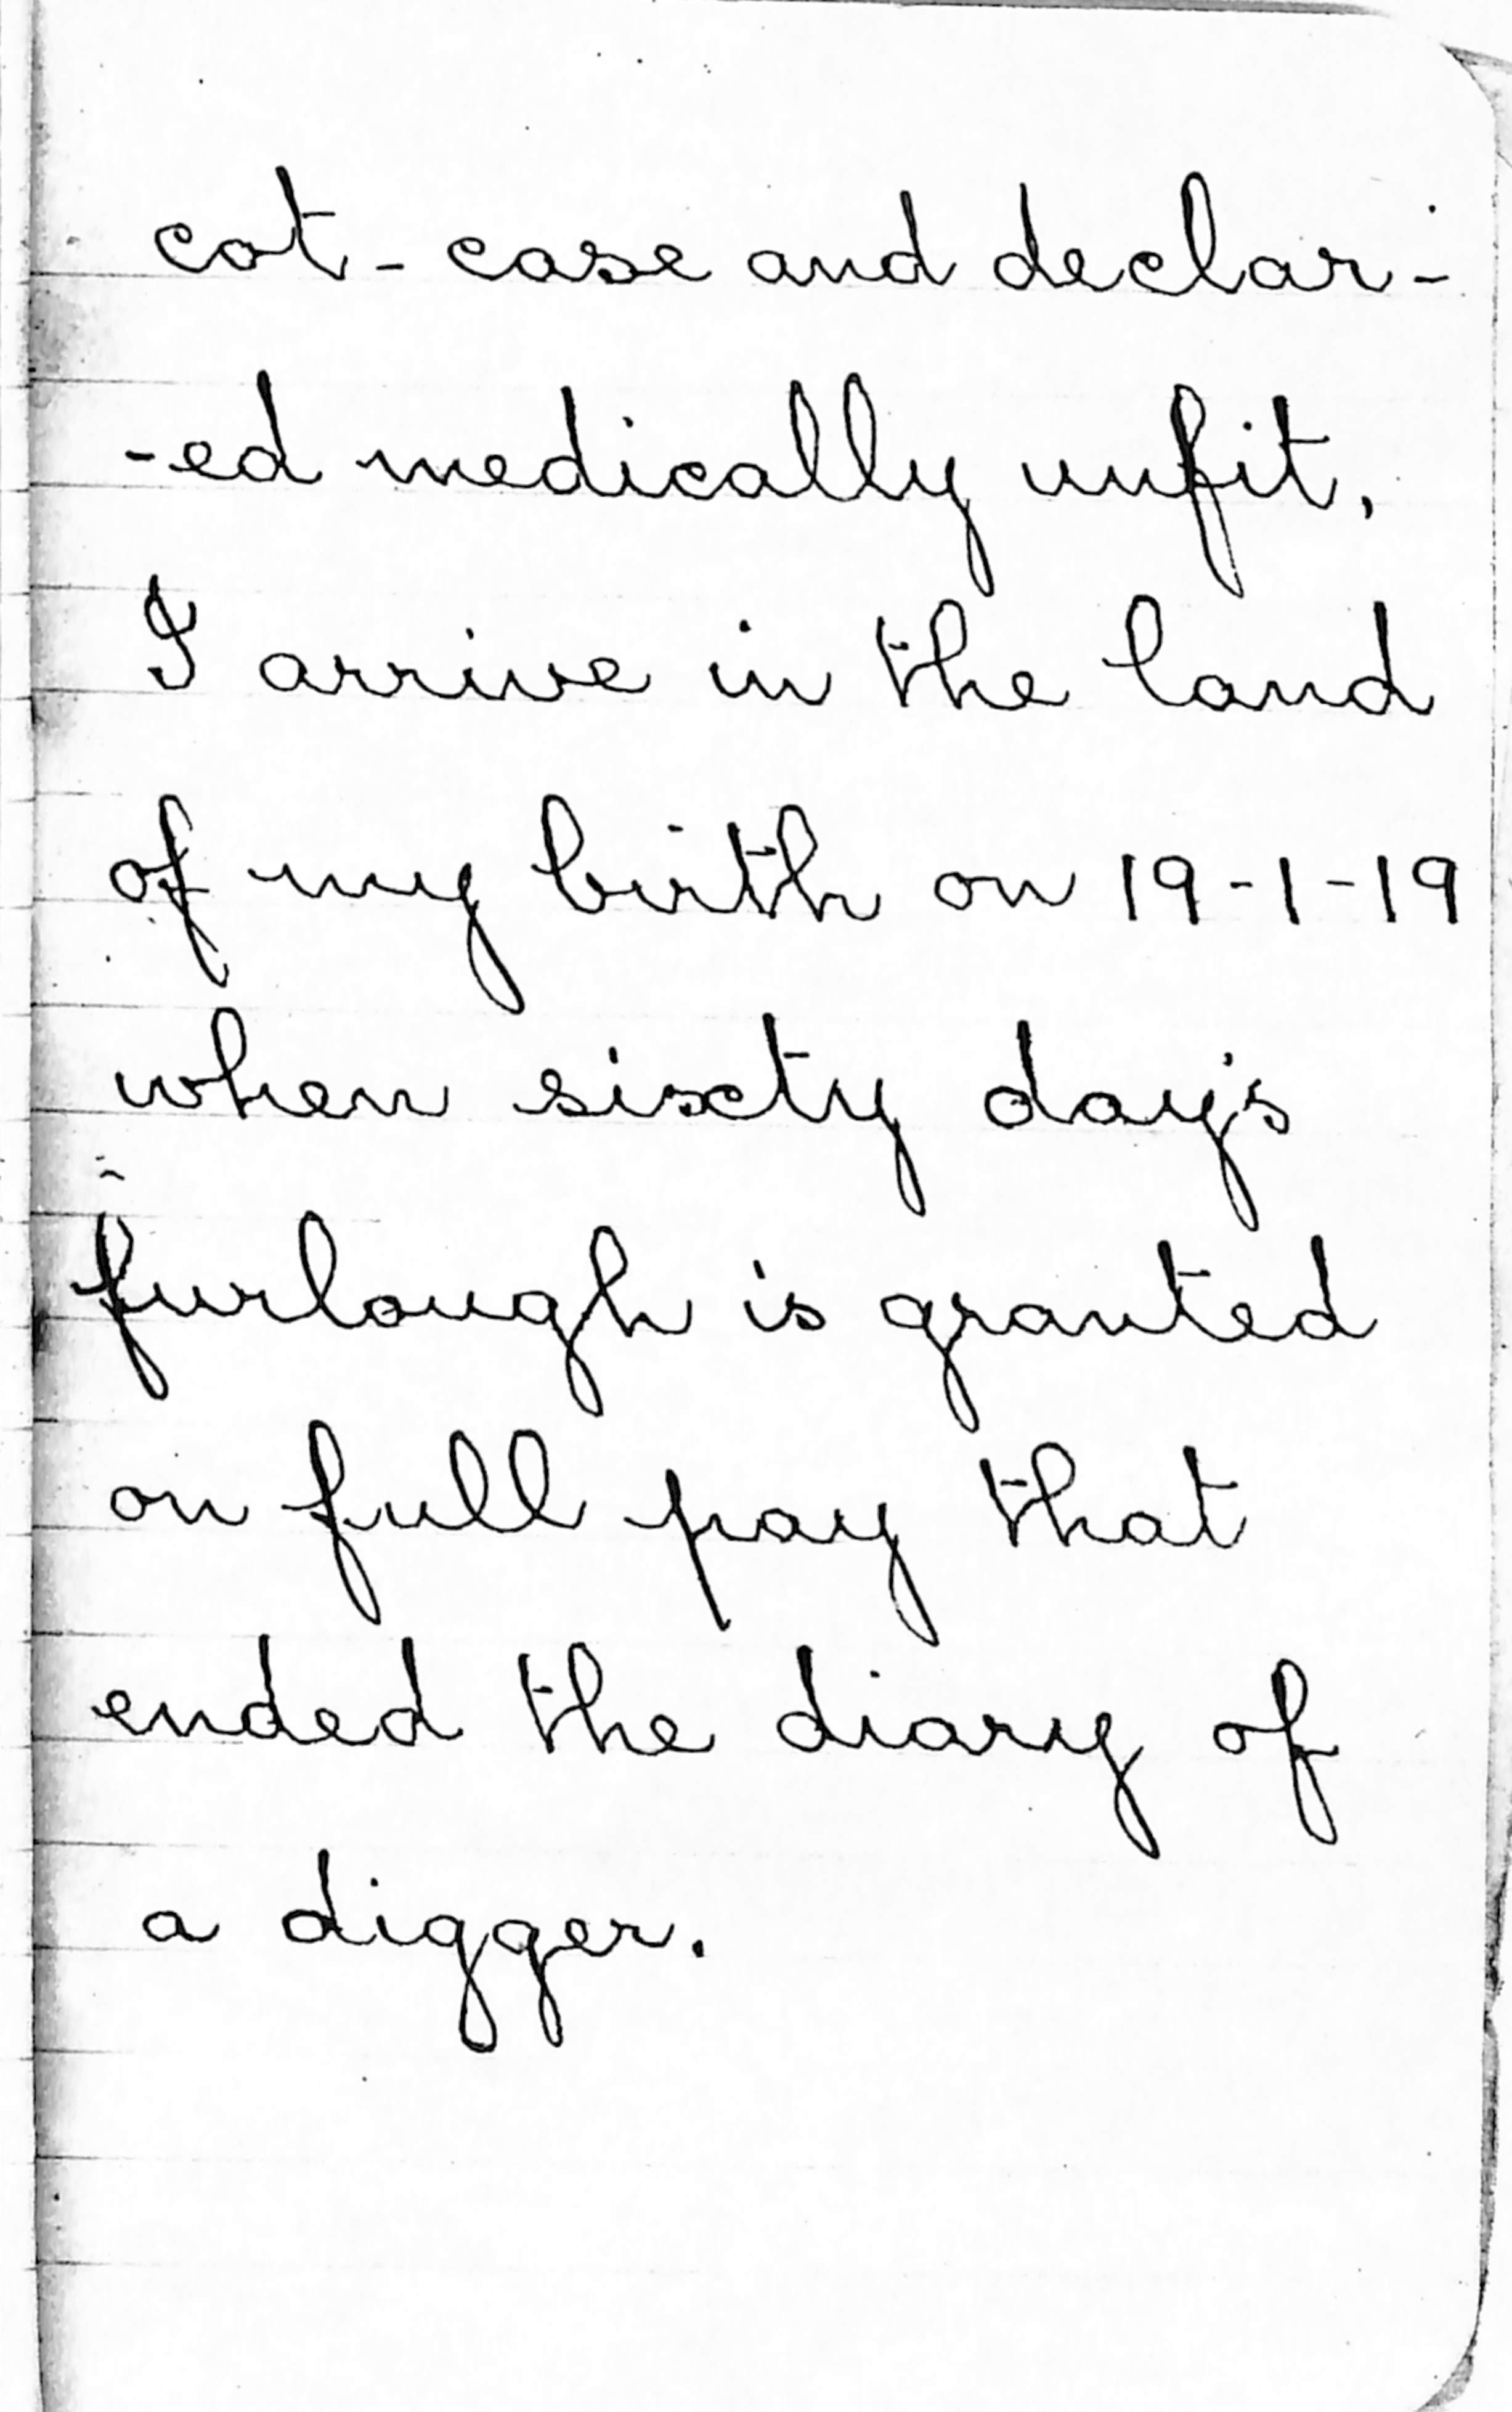 cot-case and declar-
-ed medically unfit,
I arrive in the land
of my birth on 19-1-19
when sixty day's
furlough is granted
on full pay that
ended the diary of
a digger.